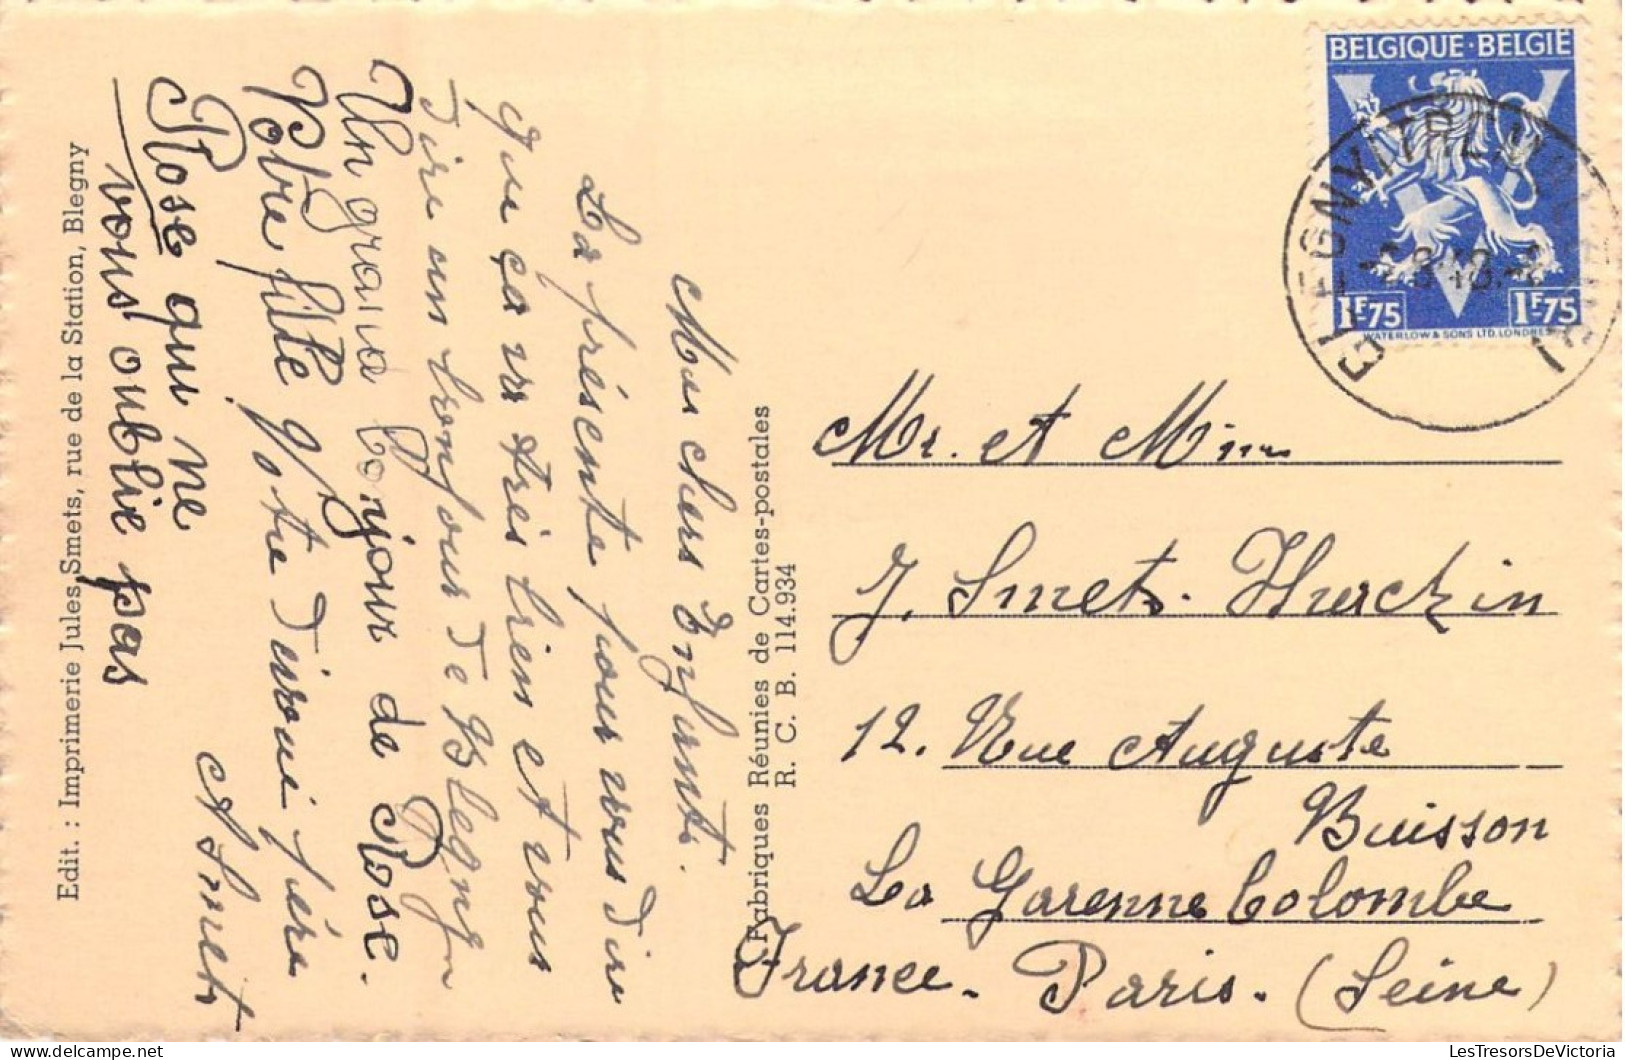 BELGIQUE·BELGIË
1F75 1F75
WATERLOW & SONS LTD. LONDRES
BLEGNY-TREMBLEUR
Mes chers Enfants.
La présente pour vous dire
que ça va très bien et vous
dire un bonjour de Blegny
Un grand bonjour de Rose.
Votre fille votre dévoué père
A Smets
Rose qui ne
vous oublie pas
Edit. : Imprimerie Jules Smets, rue de la Station, Blegny
Fabriques Réunies de Cartes-postales
R. C. B. 114.934
Mr. et Mme
J. Smets-
12. Rue Auguste
Buisson
La Garenne Colombe
France. Paris. (Seine)
LesTresorsDeVictoria